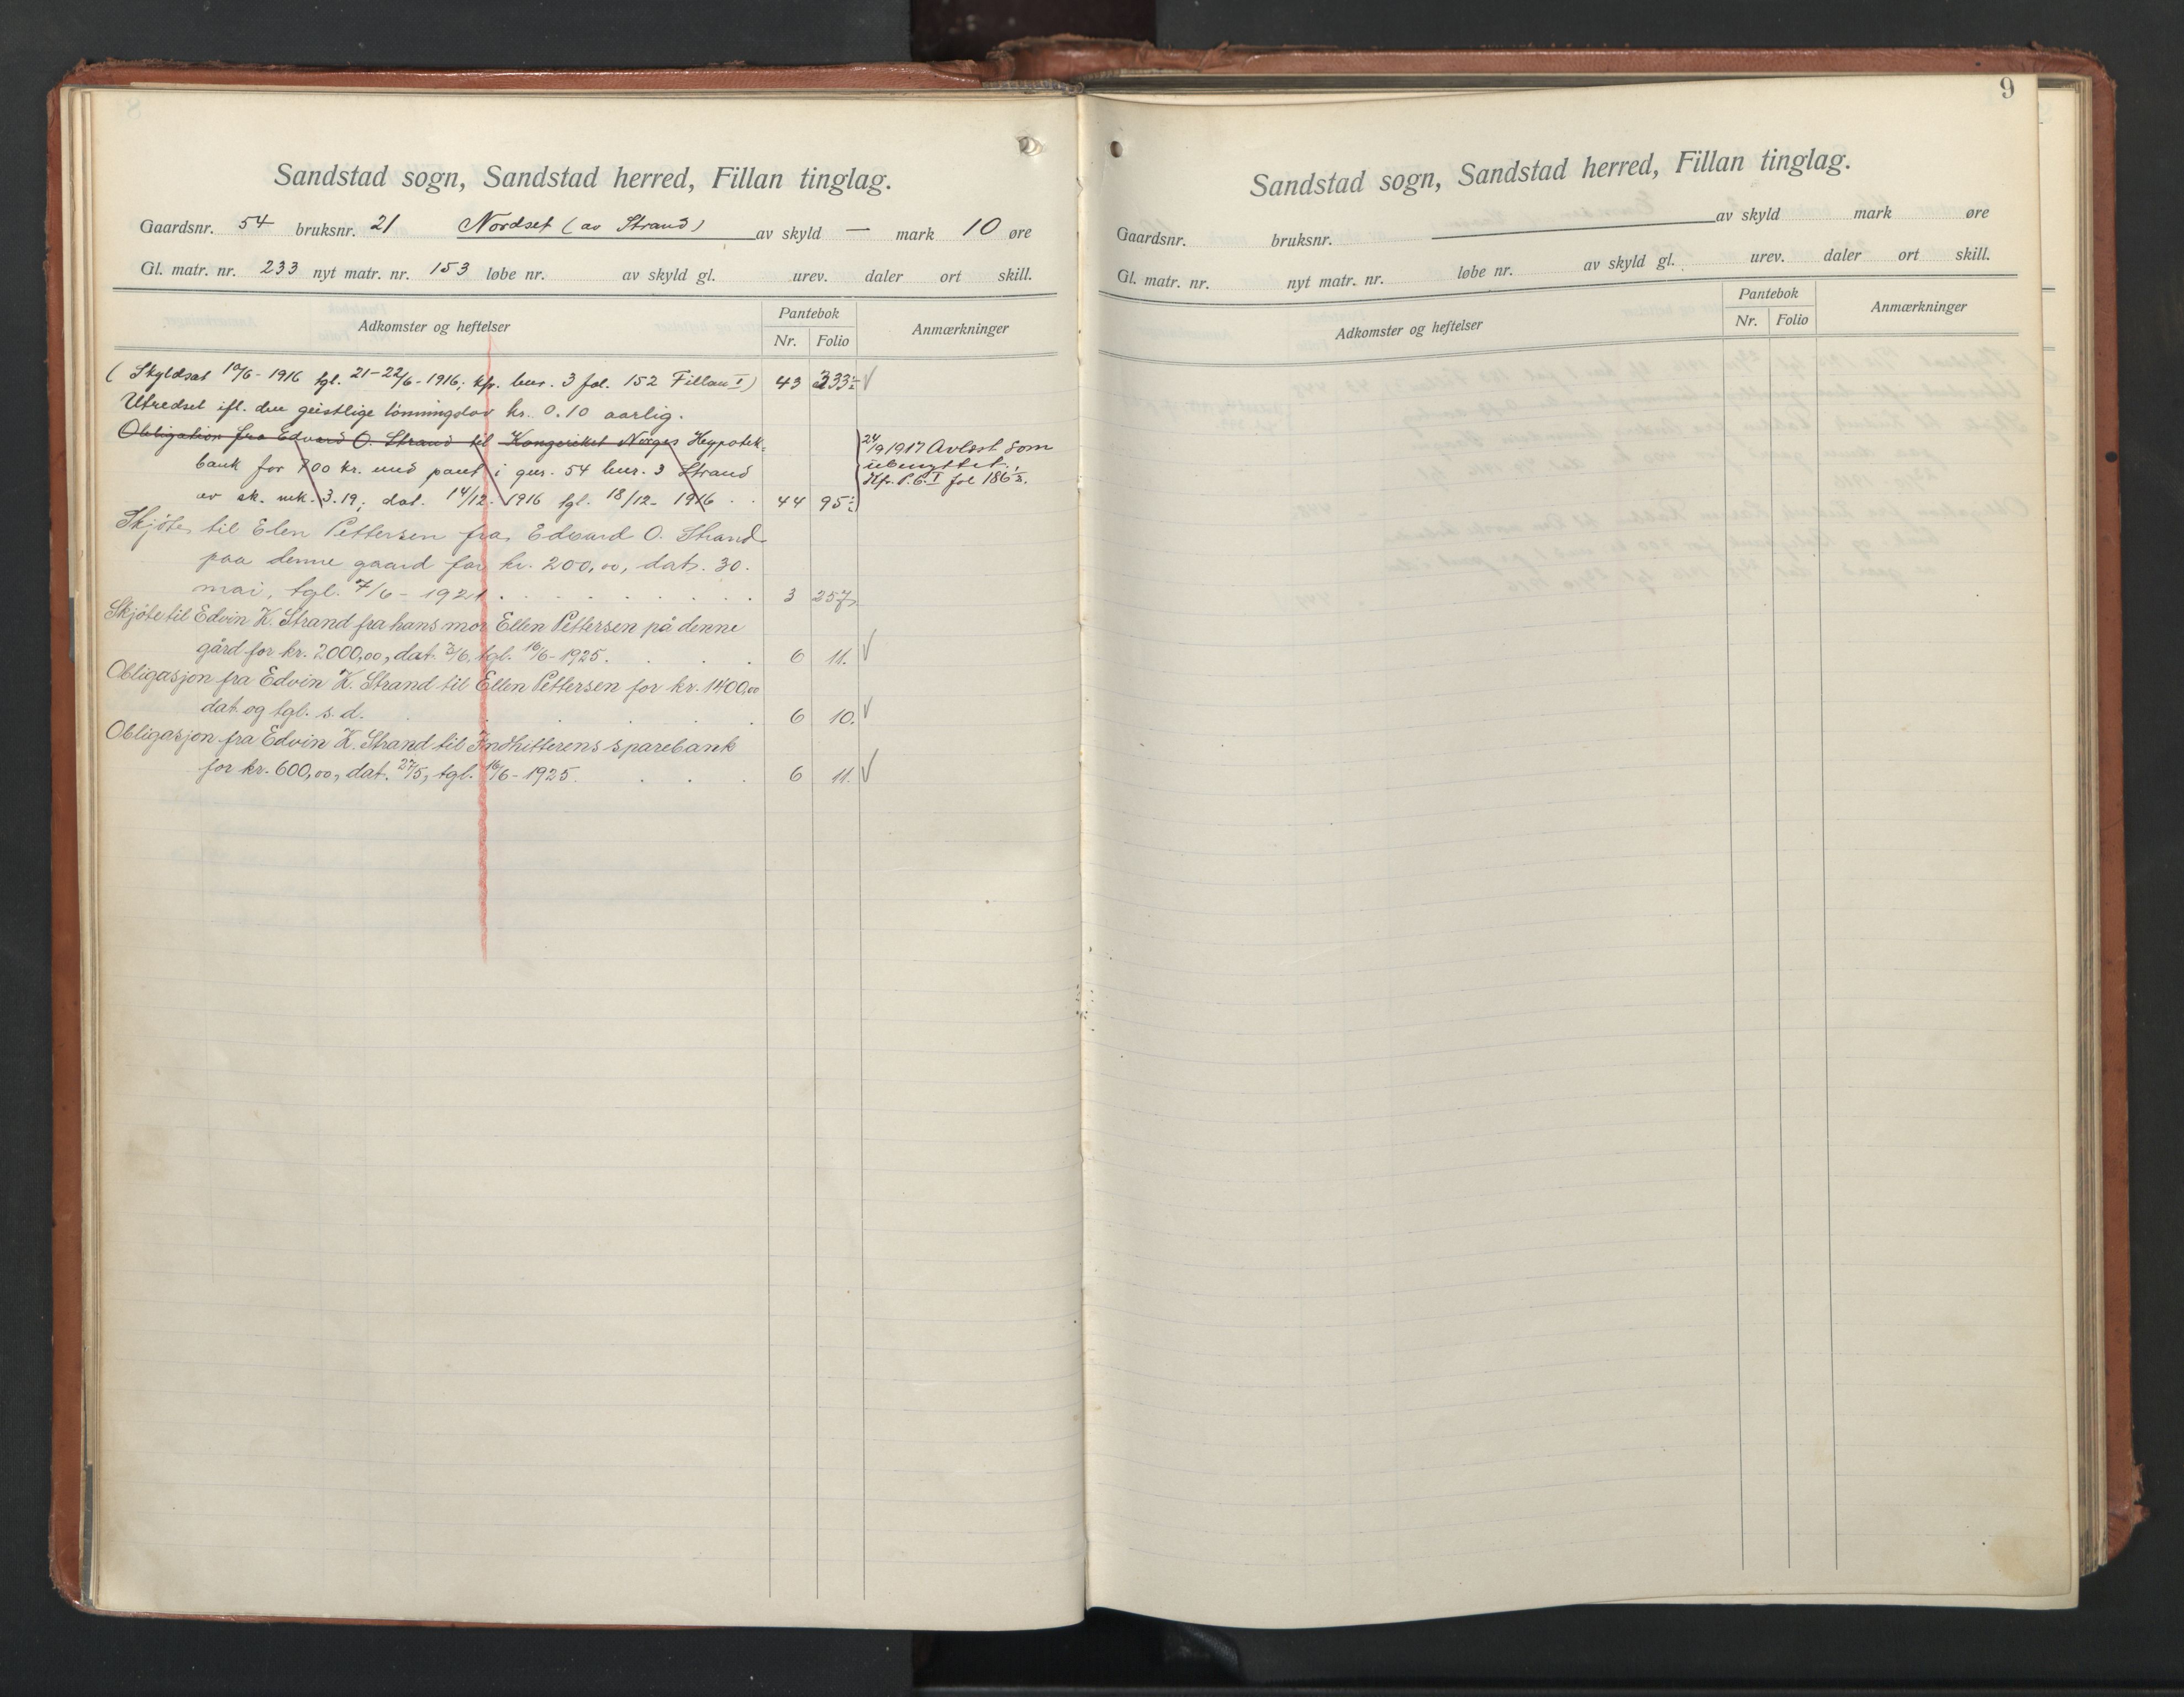 Sandstad sogn, Sandstad herred, Fillan tinglag.
Gaardsnr. 54 bruksnr. 21 Nordset (av Strand) av skyld — mark 10 øre
Gl. matr. nr. 233 nyt matr. nr. 153 løbe nr. av skyld gl. urev. daler ort skill.
Adkomster og heftelser Pantebok Nr. Folio Anmærkninger
(Skyldsat 10/6-1916 tgl. 21-22/6-1916; kfr. bnr. 3 fol. 152 Fillan I) 43 333
Utredsel ifl. den geistlige lønningslov kr. 0.10 aarlig.
Obligation fra Edvard O. Strand til Kongeriket Norges Hypotek-
bank for 700 kr. med pant i gnr. 54 bnr. 3 Strand
av sk. mk. 3.19; dat. 14/12-1916 tgl. 18/12-1916 . . 44 95
24/9 1917 Avlest som
ubenyttet.
Kfr. P.B. I fol 186
Skjøte til Elen Pettersen fra Edvard O. Strand
paa denne gaard for kr. 200,00, dat. 30.
mai, tgl. 7/6-1921 . . . . . . . . 3 257
Skjøte til Edvin K. Strand fra hans mor Ellen Pettersen på denne
gård for kr. 2000,00, dat. 3/6, tgl. 16/6-1925. . . . 6 11. √
Obligasjon fra Edvin K. Strand til Ellen Pettersen for kr. 1400,00
dat. og tgl. s. d. . . . . . . 6 10. √
Obligasjon fra Edvin K. Strand til Indhitterens sparebank
for kr. 600,00, dat. 27/5, tgl. 16/6-1925. . . . 6 11. √
9
Sandstad sogn, Sandstad herred, Fillan tinglag.
Gaardsnr. bruksnr. av skyld mark øre
Gl. matr. nr. nyt matr. nr. løbe nr. av skyld gl. urev. daler ort skill.
Adkomster og heftelser Pantebok Nr. Folio Anmærkninger